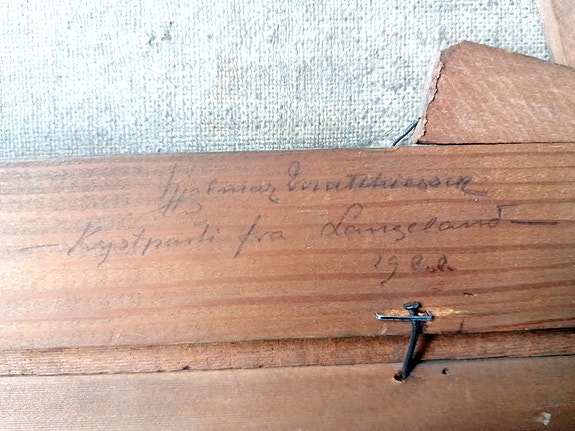 Hjalmar Matthiessen
— Kystparti fra Langeland —